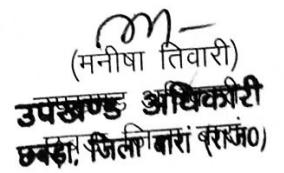 (मनीषा तिवारी)
उपखण्ड अधिकारी
छबड़ा, जिला बारां (राज0)